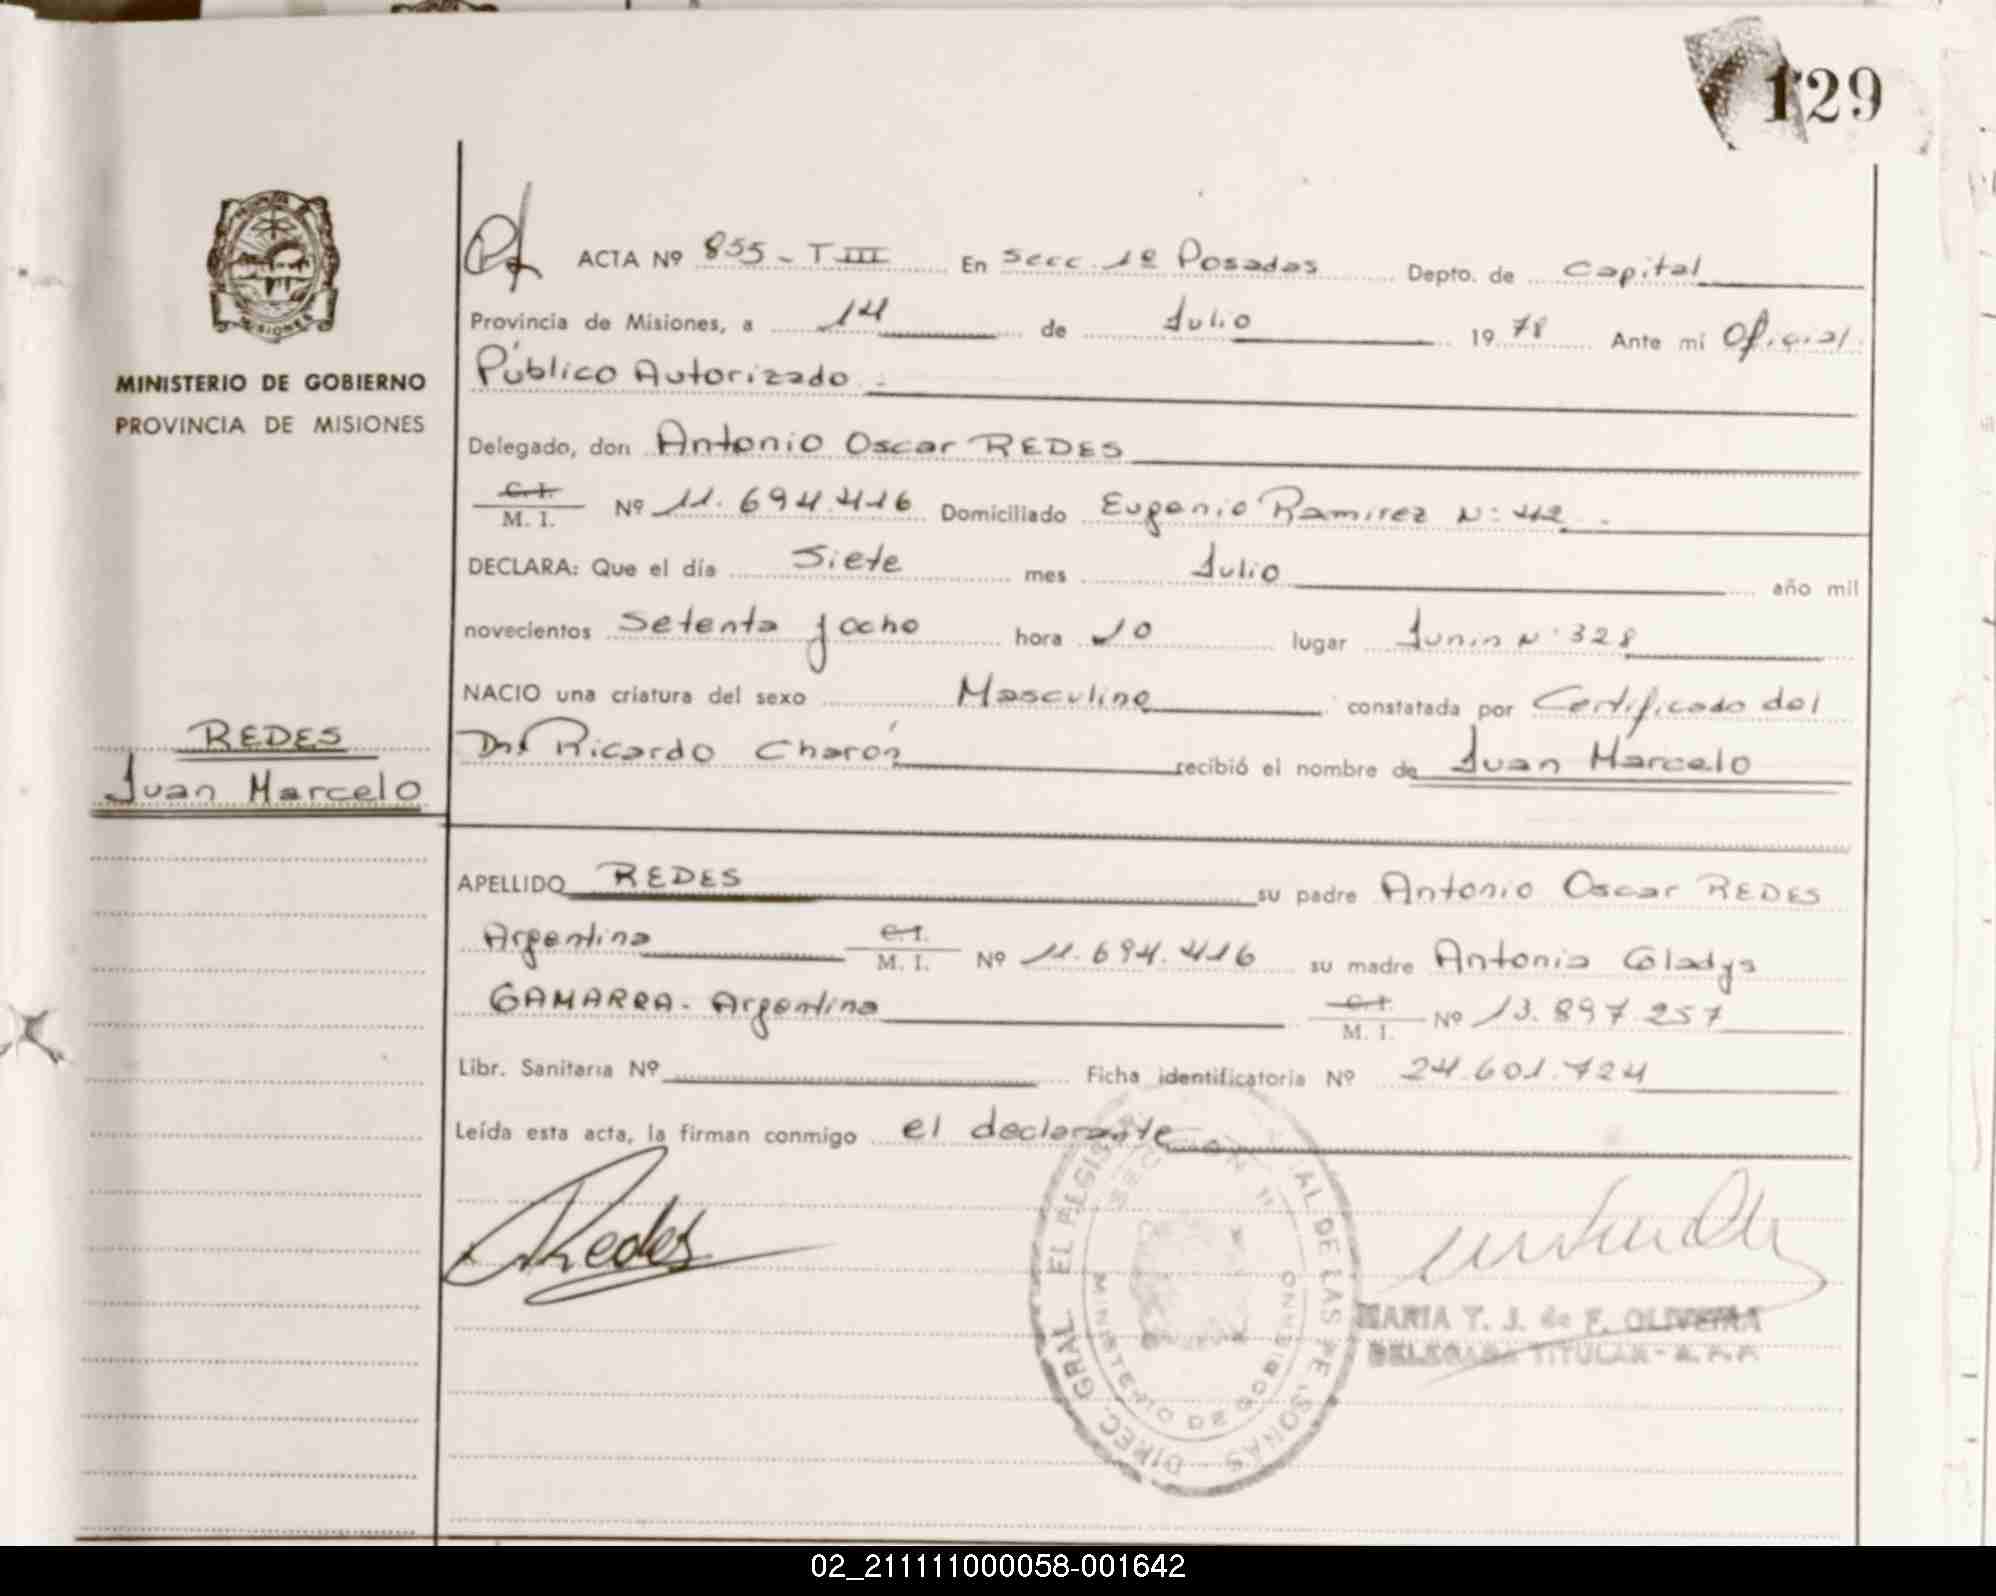 129
MISIONES
MINISTERIO DE GOBIERNO
PROVINCIA DE MISIONES
REDES
Juan Marcelo
ACTA Nº 855 - T III En Secc. 1º Posadas Depto. de Capital
Provincia de Misiones, a 14 de Julio 1978 Ante mi Oficial
Público Autorizado.
Delegado, don Antonio Oscar REDES
C.I. M. I. Nº 11.694.416 Domiciliado Eugenio Ramirez Nº 42.
DECLARA: Que el día Siete mes Julio año mil
novecientos Setenta y ocho hora 10 lugar Junin Nº 328
NACIO una criatura del sexo Masculino constatada por Certificado del
Dr. Ricardo Charón recibió el nombre de Juan Marcelo
APELLIDO REDES su padre Antonio Oscar REDES
Argentino C.I. M. I. Nº 11.694.416 su madre Antonia Gladys
GAMARRA - Argentina C.I. M. I. Nº 13.897.257
Libr. Sanitaria Nº Ficha identificatoria Nº 24.601.724
Leída esta acta, la firman conmigo el declarante
Redes
DIREC. GRAL. EL REGIS AL DE LAS PE SONAS
SECCION
MINISTERIO DE GOBIERNO
MARIA T. J. de F. OLIVEIRA
DELEGADA TITULAR
02_211111000058-001642